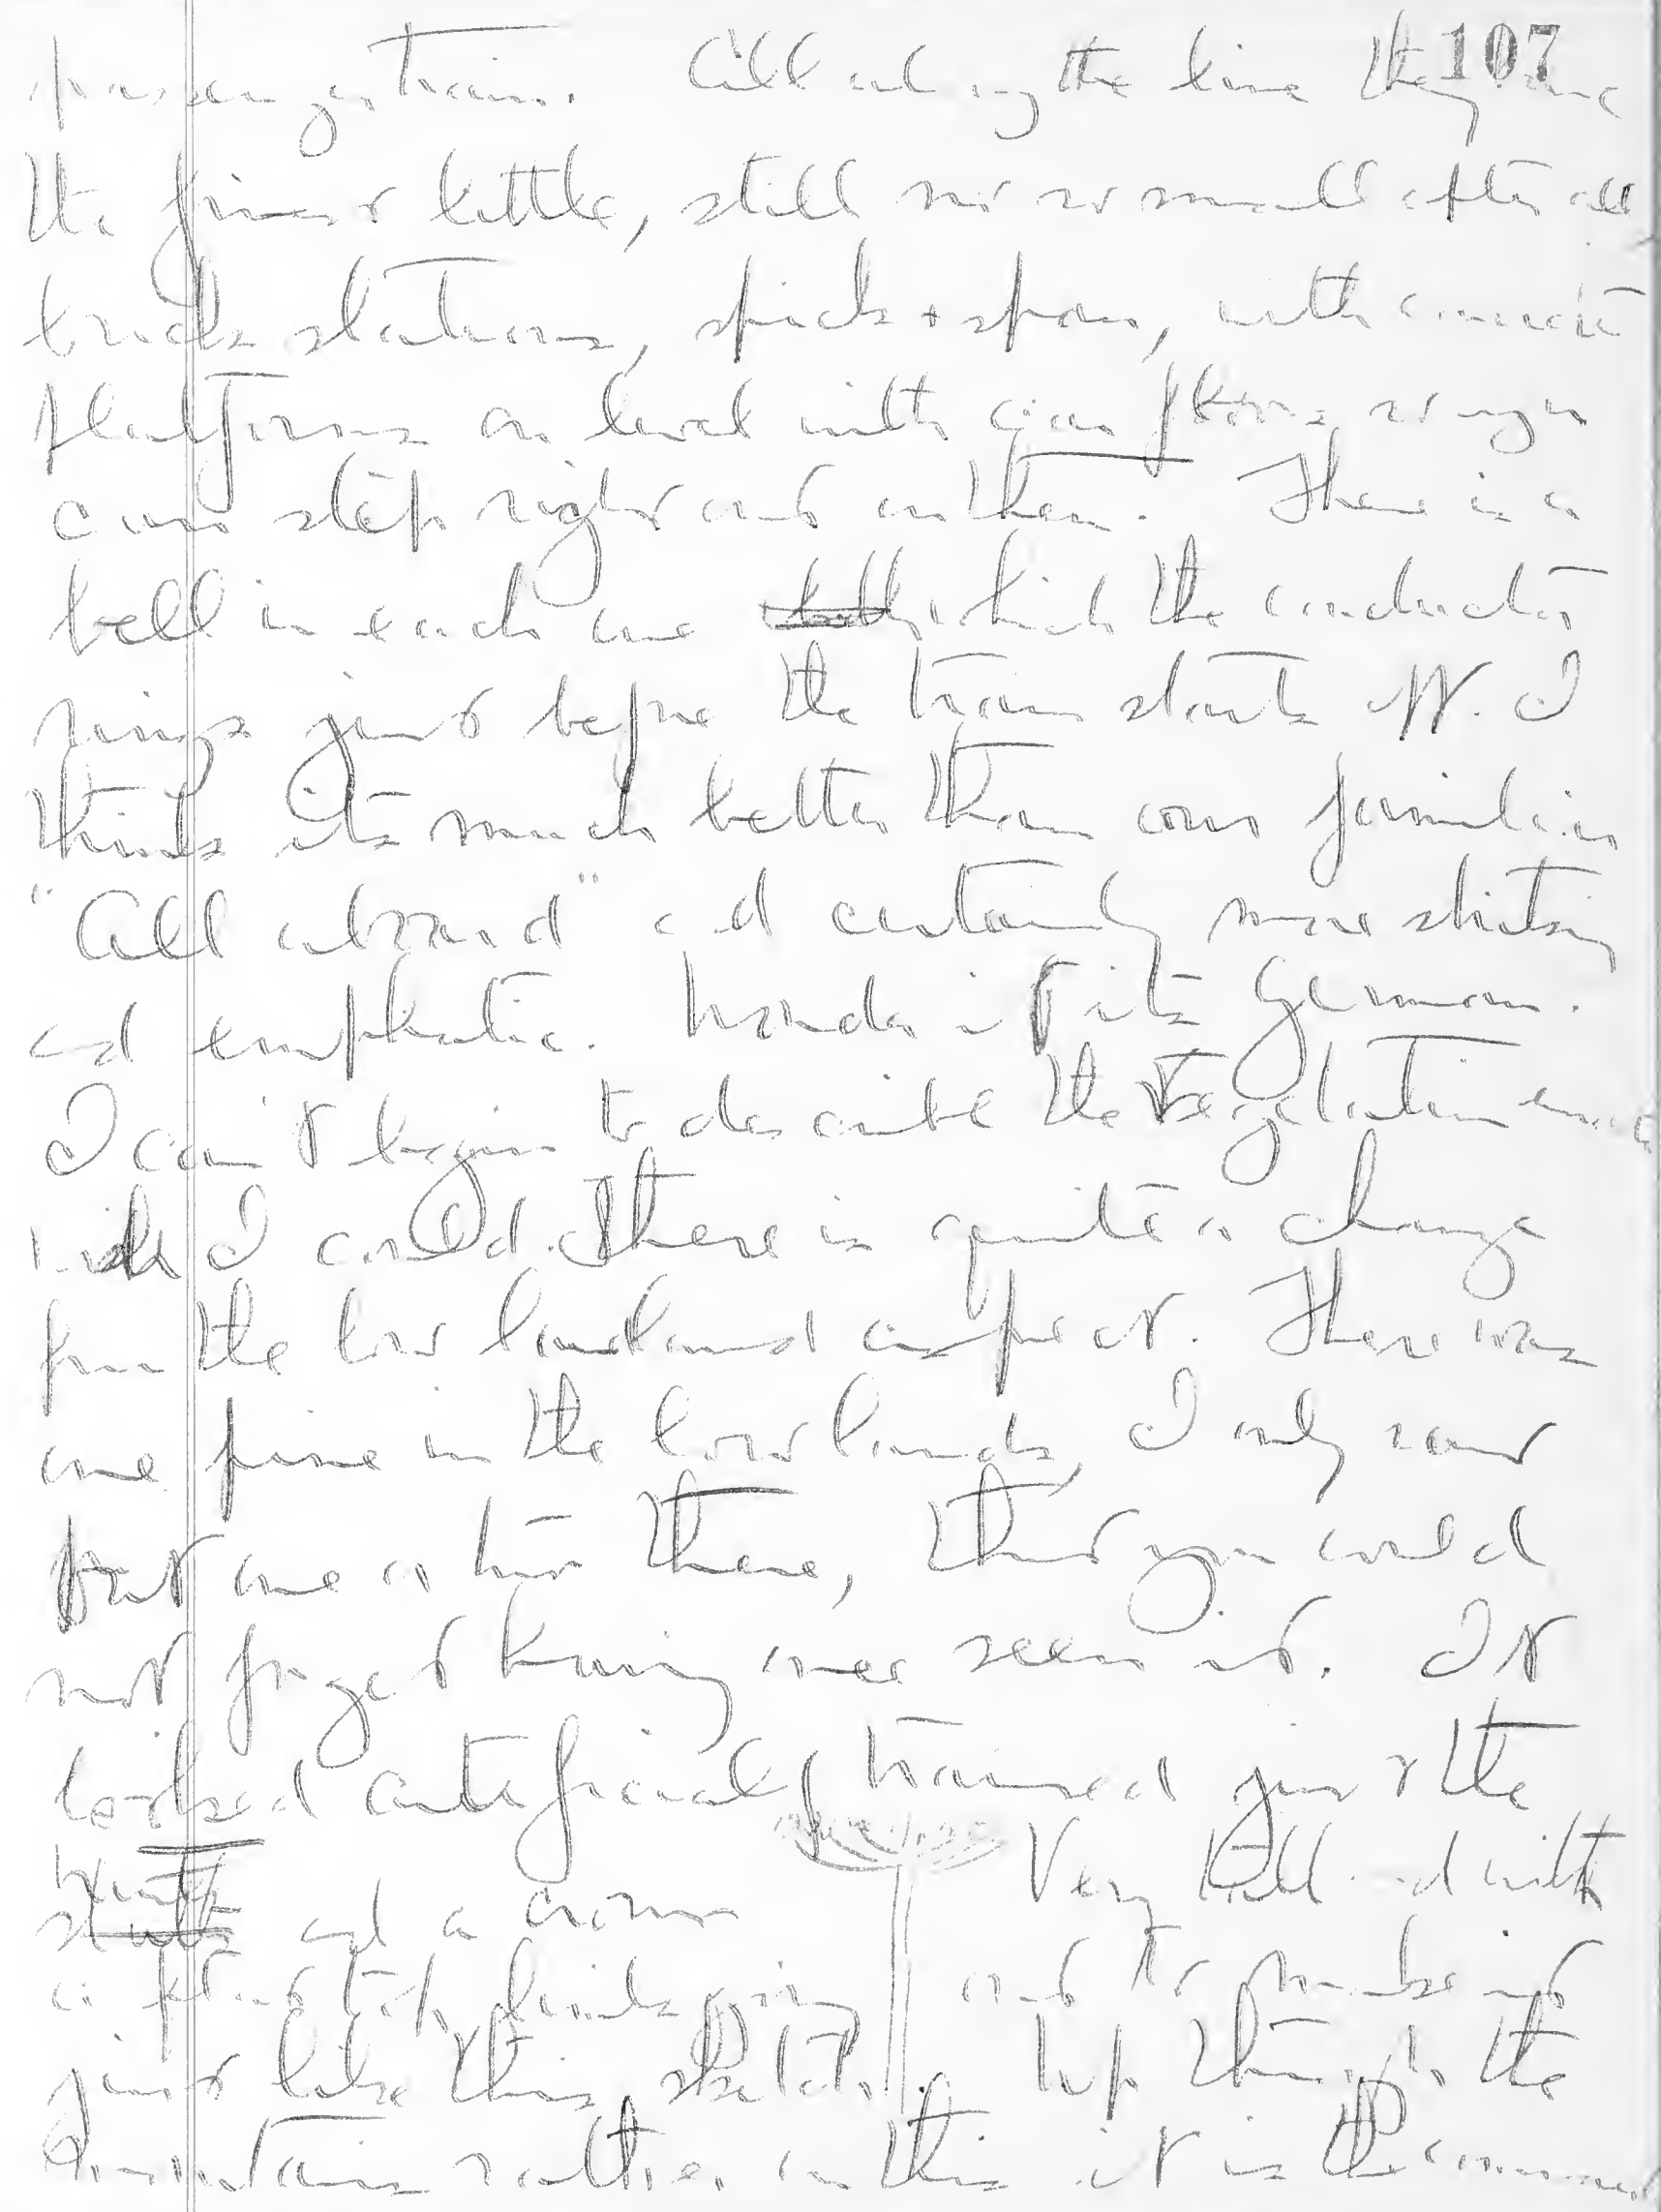 107
passenger train. All along the line they have
the finest little, still not so small after all
brick stations, spick + span, with concrete
platforms on level with car floors so you
can step right out on them. There is a
bell in each one which the conductor
rings just before the train starts off. I
think its much better than our familiar
"All aboard" and certainly more striking
and emphatic. Wonder if its German.
I can't begin to describe the vegetation
wish I could. There is quite a change
from the low land aspect. There was
one pine in the lowlands, I only saw
but one or two there, that you could
not forget having once seen it. It
looked artificially trained just the
trunk and a crown Very tall and with
a flat top, and to make it
just like this sketch. Up through the
mountains rather on this it is the